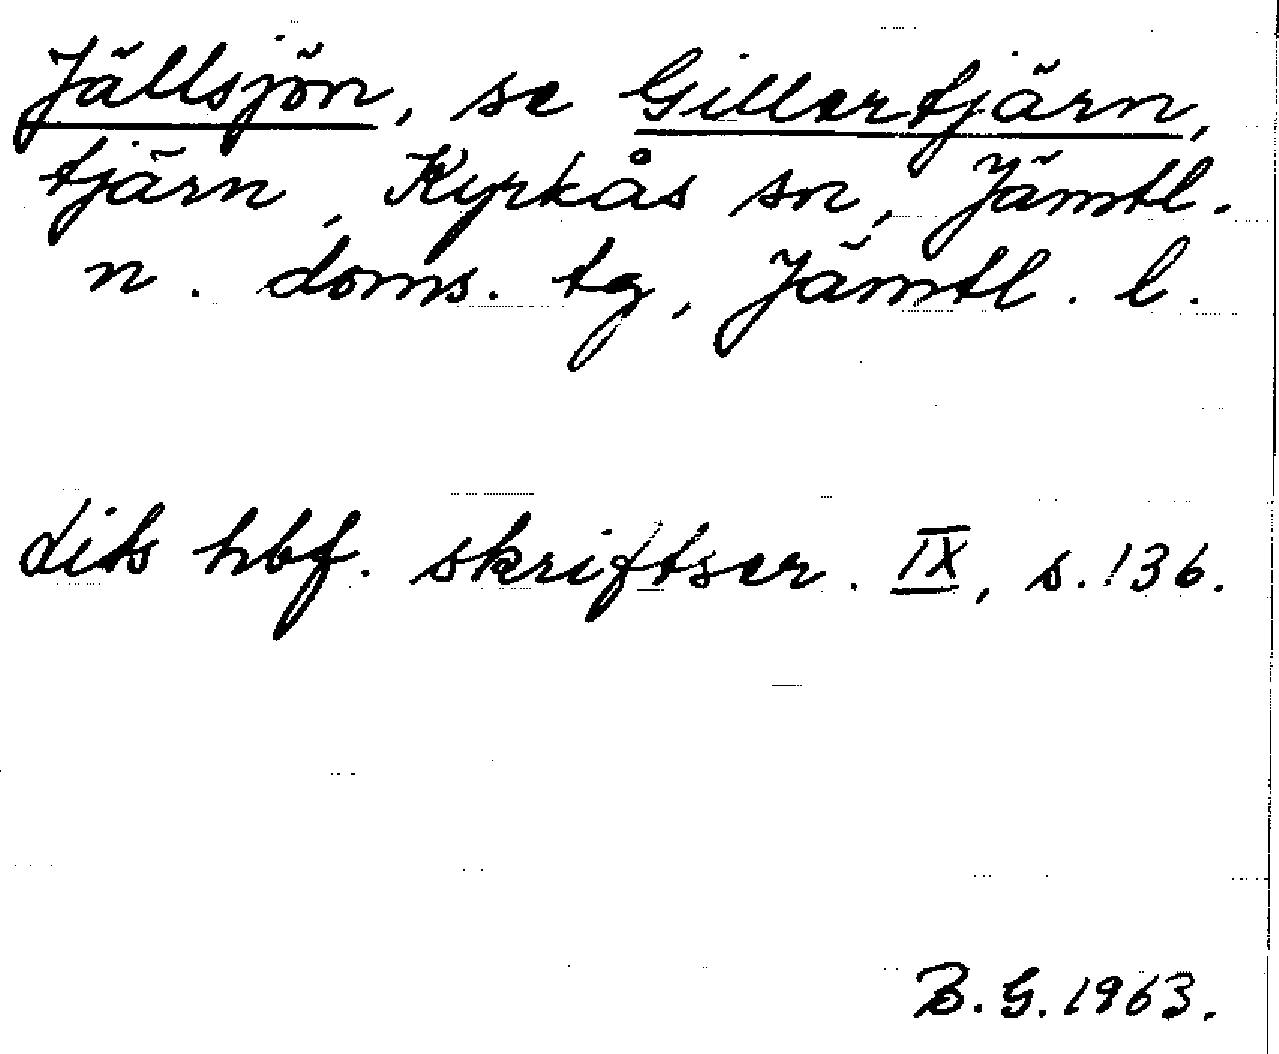 Jällsjön, se Gillertjärn,
tjärn, Kyrkås sn, Jämtl.
n. doms. tg, Jämtl. l.
Lits hbf. skriftser. IX, s. 136.
B. G. 1963.